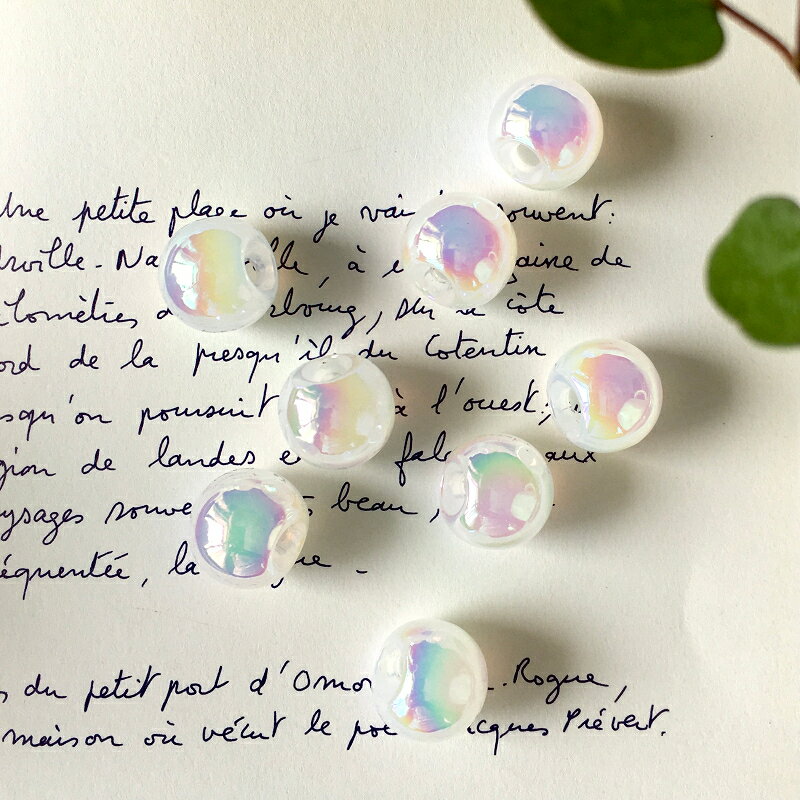 Une petite place où je vai souvent:
drville - Na lle, à e aine de
ilomètres d rbourg, sur la côte
ord de la presqu'île du Cotentin
squ'on poursuit à l'ouest;
gion de landes e fal aux
ysages souve s beau,
équentée, la que -
du petit port d'Omo Rogue,
maison où vécut le po cques Prévert.